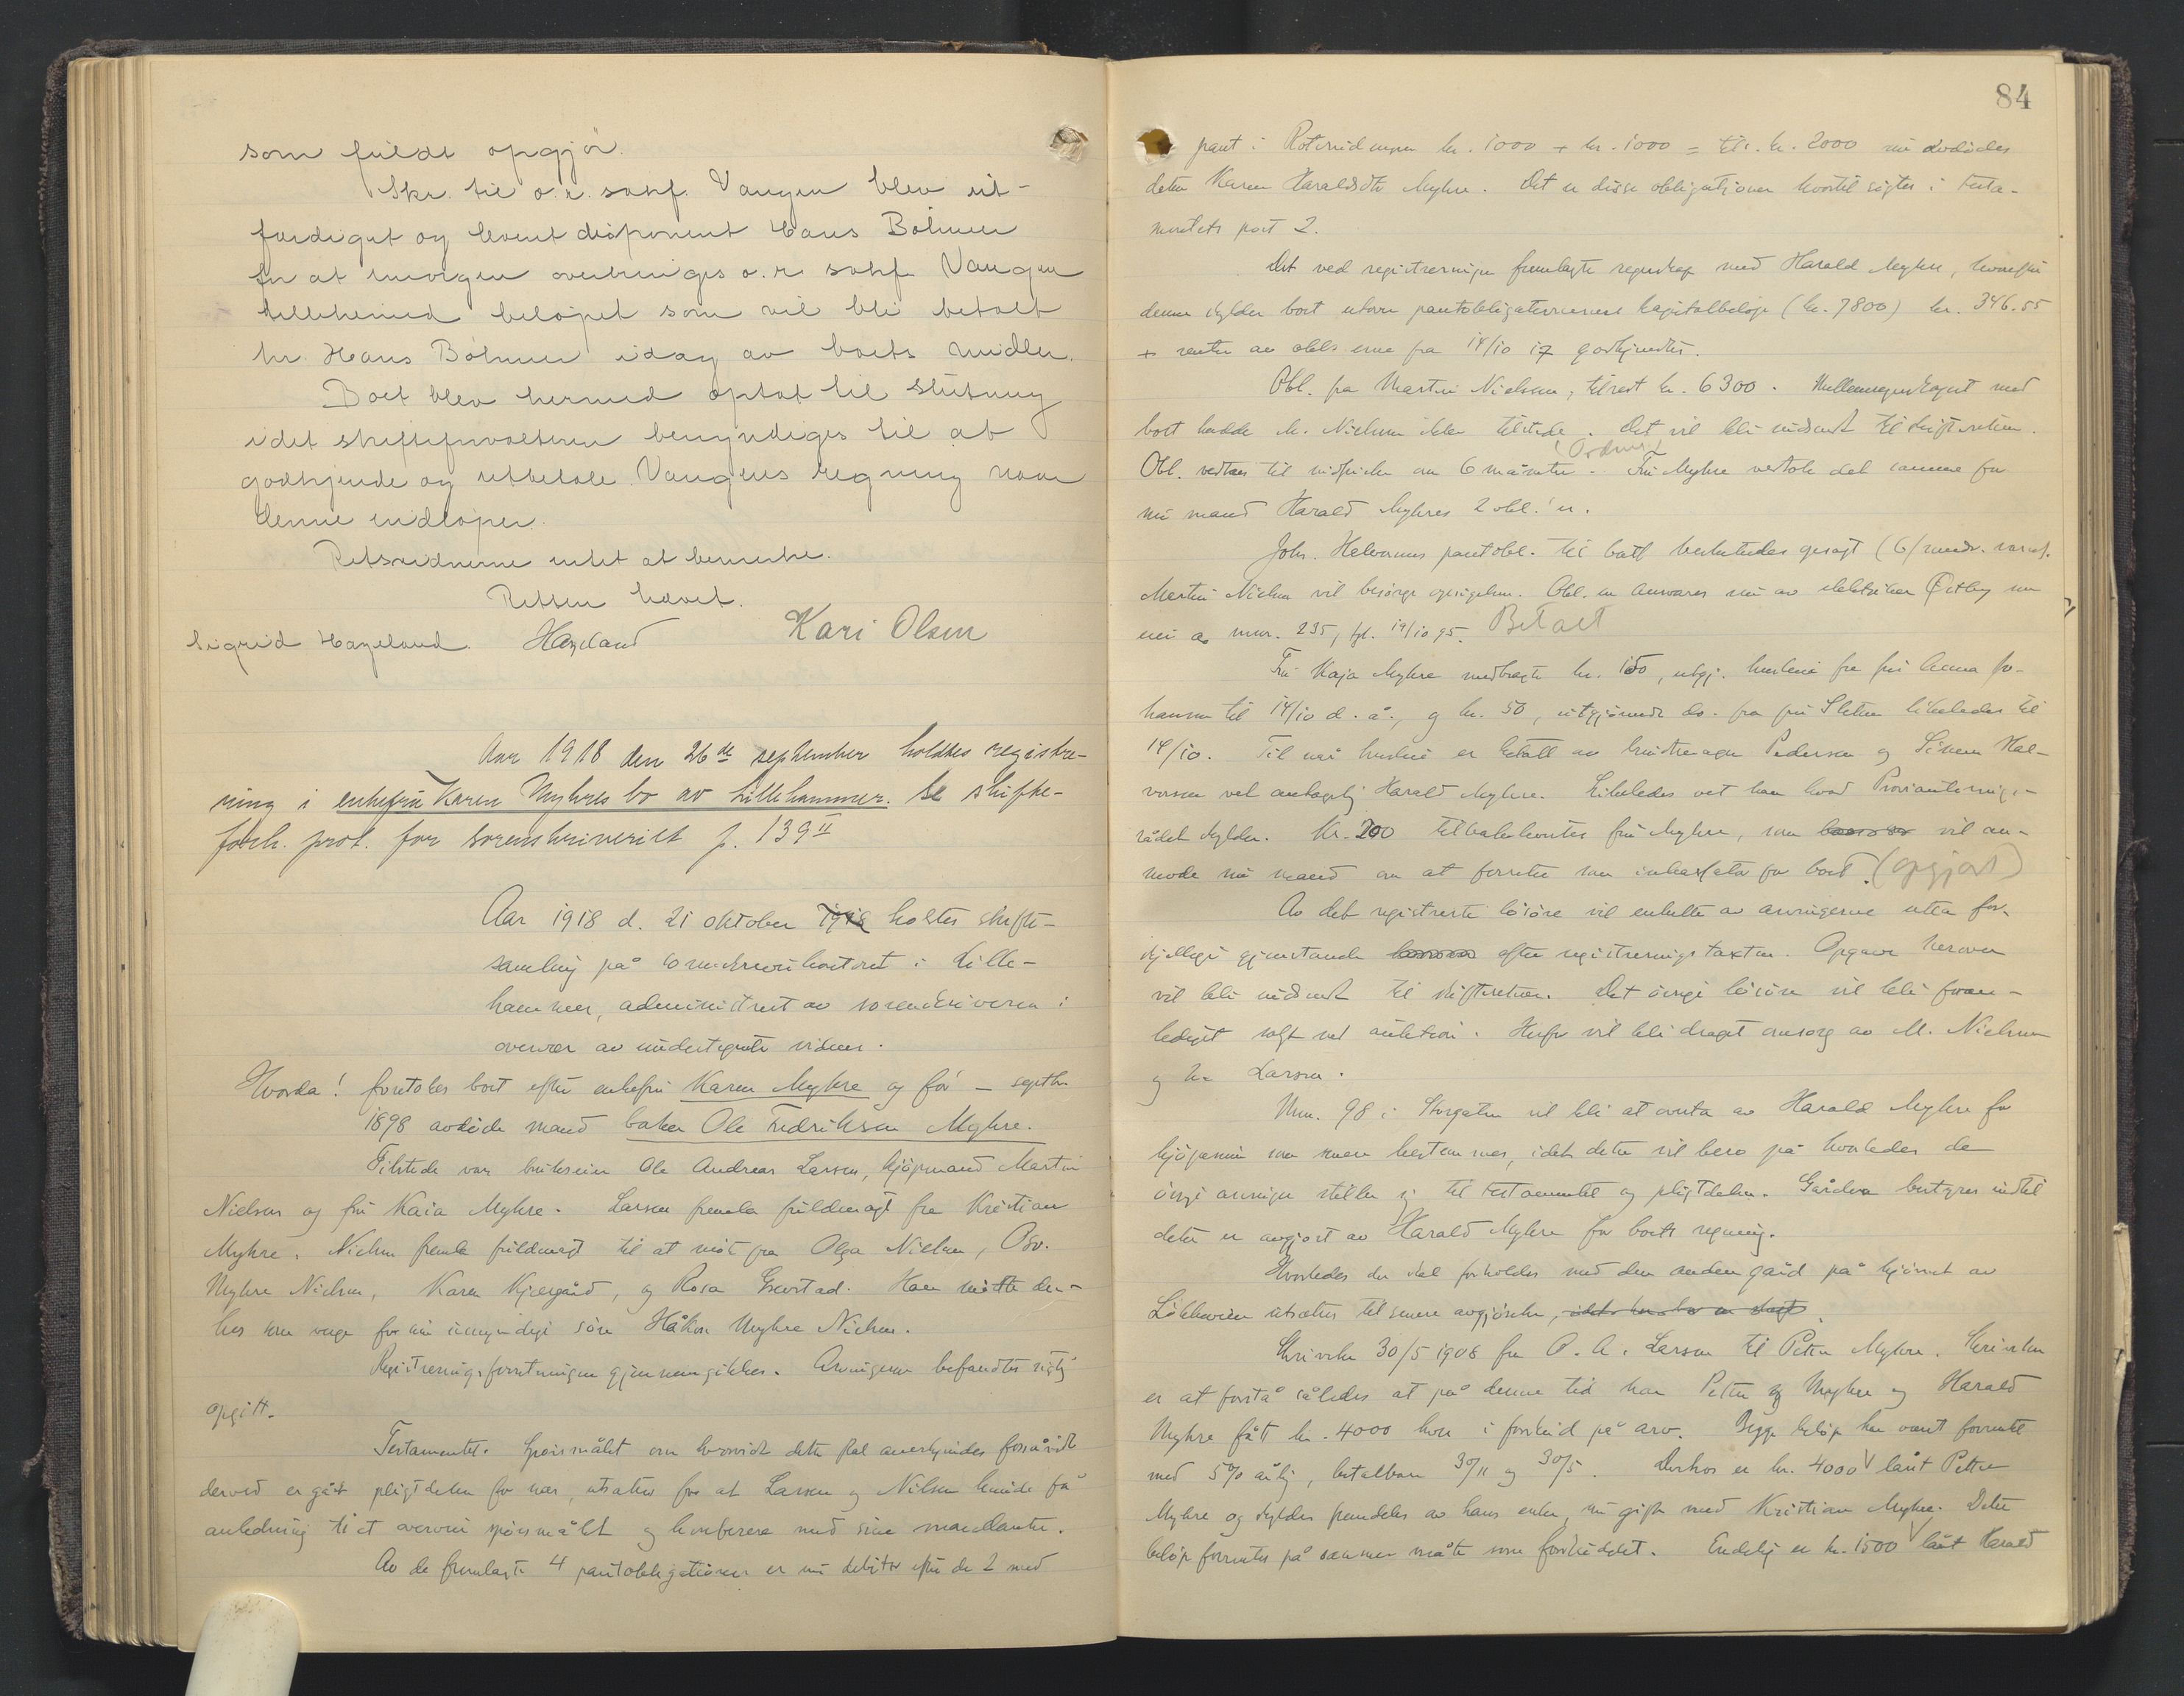 som fuldt opgjør.
Skr. til o.r. sakf. Vangen blev ut-
færdiget og levert disponent Hans Bøhmer
for at imorgen overbringes o.r. sakf. Vangen
tillikemed beløpet som vil bli betalt
hr. Hans Bøhmer idag av boets midler.
Boet blev hermed optat til slutning
idet skifteforvalteren bemyndiges til at
godkjende og utbetale Vangens regning naar
denne indløper.
Retsvidnerne intet at bemerke.
Retten hævet.
Sigrid Hageland. Hageland Kari Olsen
Aar 1918 den 26de september holdtes registre-
ring i enkefru Karen Myhres bo av Lillehammer. Se skifte-
forh. prot. for sorenskriveriet p. 139 II
Aar 1918 d. 21 oktober 1918 holdtes skifte-
samling på sorenskriverkontoret i Lille-
hammer, administrert av sorenskriveren i
overvær av undertegnede vidner.
Hvorda! foretokes boet efter enkefru Karen Myhre og før – septbr.
1898 avdøde mand baker Ole Fredriksen Myhre.
Tilstede var bruker Ole Andreas Larsen, kjøpmand Martin
Nielsen og fru Kaia Myhre. Larsen fremla fuldmagt fra Kristian
Myhre. Nielsen fremla fuldmagt til at møte fra Olga Nielsen, Osv.
Myhre Nielsen, Karen Kjærgård, og Rosa Gravstad. Han møtte der-
hos som verge for sin umyndige søn Håkon Myhre Nielsen.
Registreringsforretningen gjennemgikkes. Arvingerne befandtes rigtig
opgitt.
Testamentet. Spørsmålet om hvorvidt dette skal anerkjendes forsåvidt
derved er gåt pligtdelen for nær, utsattes for at Larsen og Nilsen kunde få
anledning til at overveie spørsmålet og konferere med sine mandanter.
Av de fremlagte 4 pantobligationer er nu debitor efter de 2 med
84
pant i Rotvridningen kr. 1000 + kr. 1000 = tils. kr. 2000 nu avdødes
datter Karen Haraldsdtr Myhre. Det er disse obligationer hvortil sigtes i testa-
mentets post 2.
Det ved registreringen fremlagte regnskap med Harald Myhre, hvorefter
denne skylder boet utover pantobligationernes kapitalbeløp (kr. 7800) kr. 346.55
+ renter av obl.erne fra 14/10 17 godkjendtes.
Obl. fra Martin Nielsen, tilrest kr. 6300. Mellemregnskapet med
boet hadde M. Nielsen ikke tilstede. Det vil bli indsendt til skifteretten.
(Ordnet)
Obl. vedtaes til indfrielse om 6 måneder. Fru Myhre vedtok det samme for
sin mand Harald Myhres 2 obl.'er.
Johs. Halvorsens pantobl. til boet besluttedes opsagt (6 mndr. varsel.
Martin Nielsen vil besørge opsigelsen. Obl. en ansvares nu av elektriker Østby som
eier av mnr. 235, tgl. 19/10 95. Betalt
Fru Kaja Myhre medbragte kr. 150, utgj. husleie fra fru Anna Jo-
hansen til 14/10 d. å., og kr. 50, utgjørende do. fra fru Sletten likeledes til
14/10. Til når husleie er betalt av Pedersen og Simen Hal-
vorsen vet antagelig Harald Myhre. Likeledes vet han hvad Provianterings-
rådet skylder. Kr. 200 tilbakeleveres fru Myhre, som vil an-
mode sin mand om at forrette som inkassator for boet. (opgjort)
Av det registrerte løsøre vil enkelte av arvingerne utta for-
skjellige gjenstande efter registreringstaksten. Opgave herover
vil bli indsendt til skifteretten. Det øvrige løsøre vil bli foran-
lediget solgt ved auktion. Herfor vil bli draget omsorg av M. Nielsen
og hr. Larsen.
Mnr. 98 i Storgaten vil bli at overta av Harald Myhre for
kjøpesum som senere bestemmes, idet dette vil bero på hvorledes de
øvrige arvinger stiller sig til testamentet og pligtdelen. Gården bestyres indtil
dette er avgjort av Harald Myhre for boets regning.
Hvorledes der skal forholdes med den anden gård på hjørnet av
Løkkeveien utsættes til senere avgjørelse,
Skrivelse 30/5 1908 fra O. A. Larsen til Petter Myhre. Skrivelsen
er at forstå således at på denne tid har Petter Myhre og Harald
Myhre fåt kr. 4000 hver i forskud på arv. Begge beløp har været forrentet
med 5% årlig, betalbare 30/11 og 30/5. Derhos er kr. 4000 lånt Petter
Myhre og skyldes fremdeles av hans enke, nu gift med Kristian Myhre. Dette
beløp forrentes på samme måte som forskuddet. Endelig er kr. 1500 lånt Harald